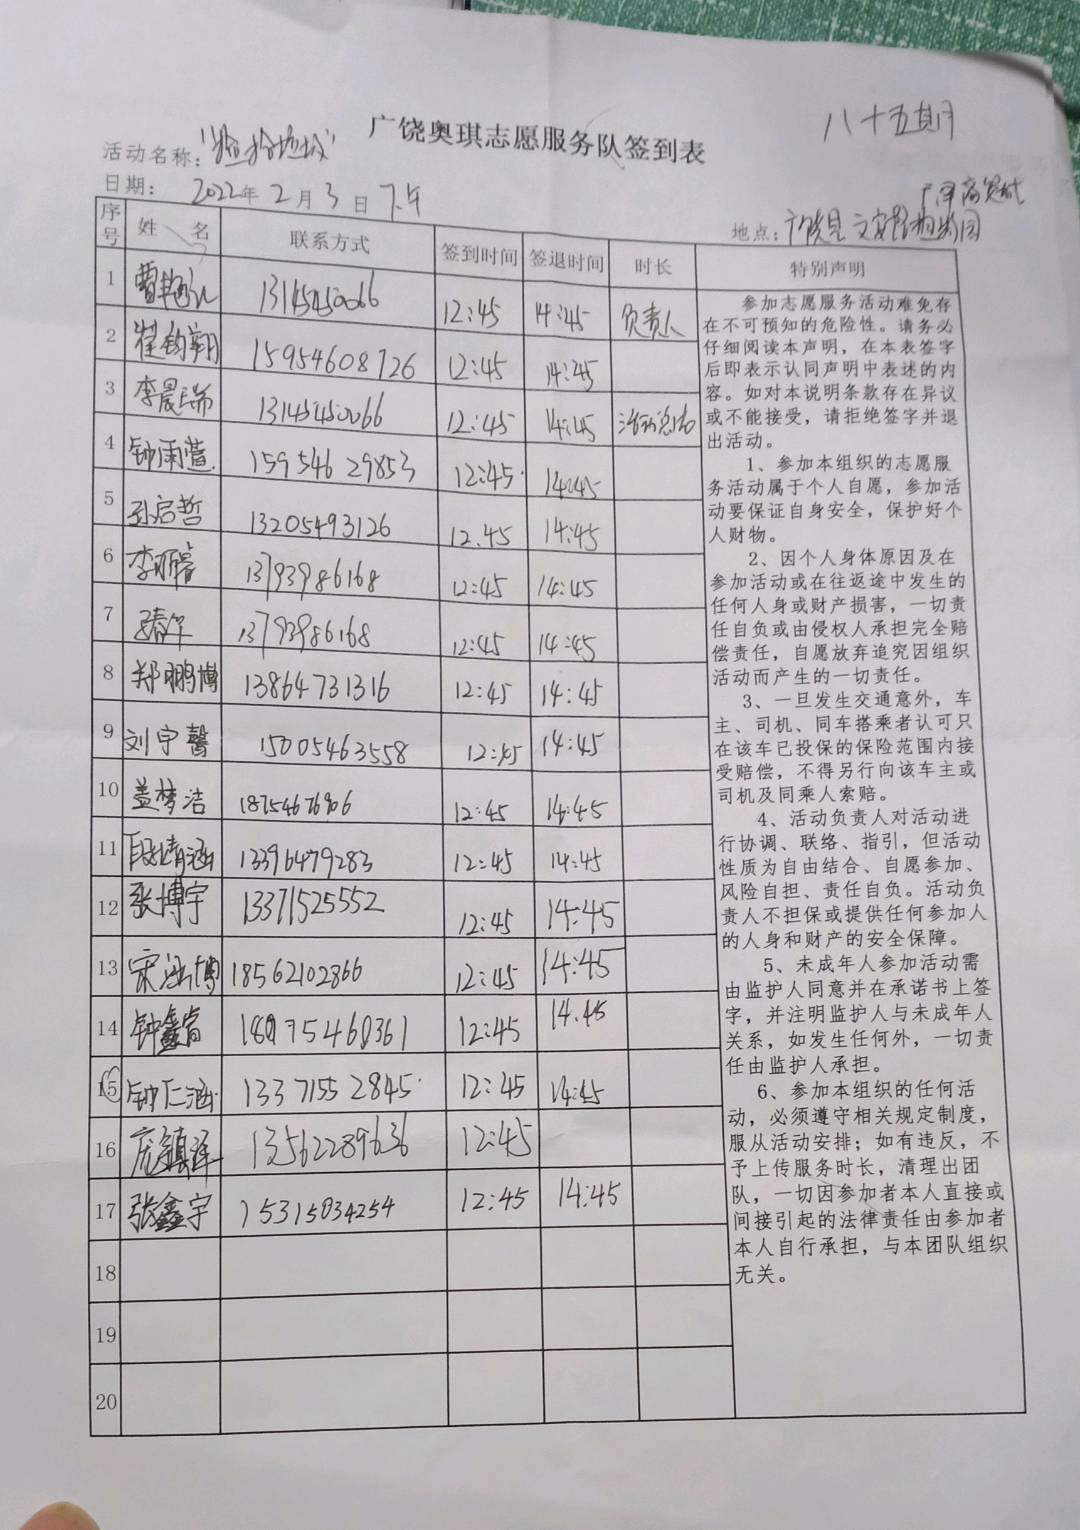 八十五期
广饶奥琪志愿服务队签到表
活动名称：“捡拾垃圾”
日期： 2022年2月3日下午
地点：广饶县
序号 姓 名 联系方式 签到时间 签退时间 时长 特别声明
1 13145450066 12:45 14:45 负责人
2 崔钧翔 15954608726 12:45 14:45
3 李晨瑞 13145450066 12:45 14:45 活动总结
4 钟雨萱 15954629853 12:45 14:45
5 孙启哲 13205493126 12.45 14:45
6 13793986168 12:45 14:45
7 13793986168 12:45 14:45
8 郑鹏博 13864731316 12:45 14:45
9 刘宇馨 15005463558 12:45 14:45
10 盖梦洁 18754676906 12:45 14:45
11 段婧涵 13396479283 12:45 14:45
12 张博宇 13371525552 12:45 14:45
13 宋泓博 18562102866 12:45 14:45
14 12:45 14.45
15 钟仁涵 13371552845 12:45 14:45
16 庞镇译 13562289636 12:45
17 张鑫宇 15315034254 12:45 14:45
18
19
20
参加志愿服务活动难免存
在不可预知的危险性。请务必
仔细阅读本声明，在本表签字
后即表示认同声明中表述的内
容。如对本说明条款存在异议
或不能接受，请拒绝签字并退
出活动。
1、参加本组织的志愿服
务活动属于个人自愿，参加活
动要保证自身安全，保护好个
人财物。
2、因个人身体原因及在
参加活动或在往返途中发生的
任何人身或财产损害，一切责
任自负或由侵权人承担完全赔
偿责任，自愿放弃追究因组织
活动而产生的一切责任。
3、一旦发生交通意外，车
主、司机、同车搭乘者认可只
在该车已投保的保险范围内接
受赔偿，不得另行向该车主或
司机及同乘人索赔。
4、活动负责人对活动进
行协调、联络、指引，但活动
性质为自由结合、自愿参加、
风险自担、责任自负。活动负
责人不担保或提供任何参加人
的人身和财产的安全保障。
5、未成年人参加活动需
由监护人同意并在承诺书上签
字，并注明监护人与未成年人
关系，如发生任何外，一切责
任由监护人承担。
6、参加本组织的任何活
动，必须遵守相关规定制度，
服从活动安排；如有违反，不
予上传服务时长，清理出团
队，一切因参加者本人直接或
间接引起的法律责任由参加者
本人自行承担，与本团队组织
无关。